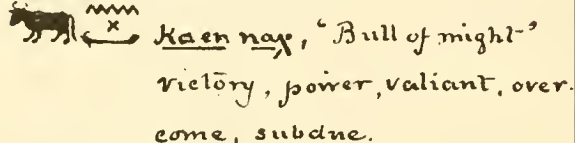 Ka en nax, "Bull of might"
victory, power, valiant, over-
come, subdue.